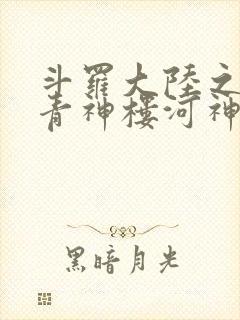 斗羅大陸之
青神樓河神
黑暗月光